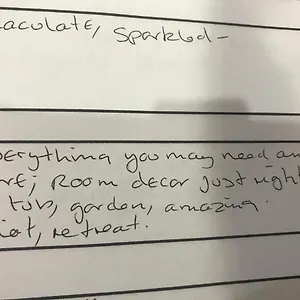 aculate, sparkled -
verything you may need an
ore; Room decor just right
tub, garden, amazing.
iet, retreat.